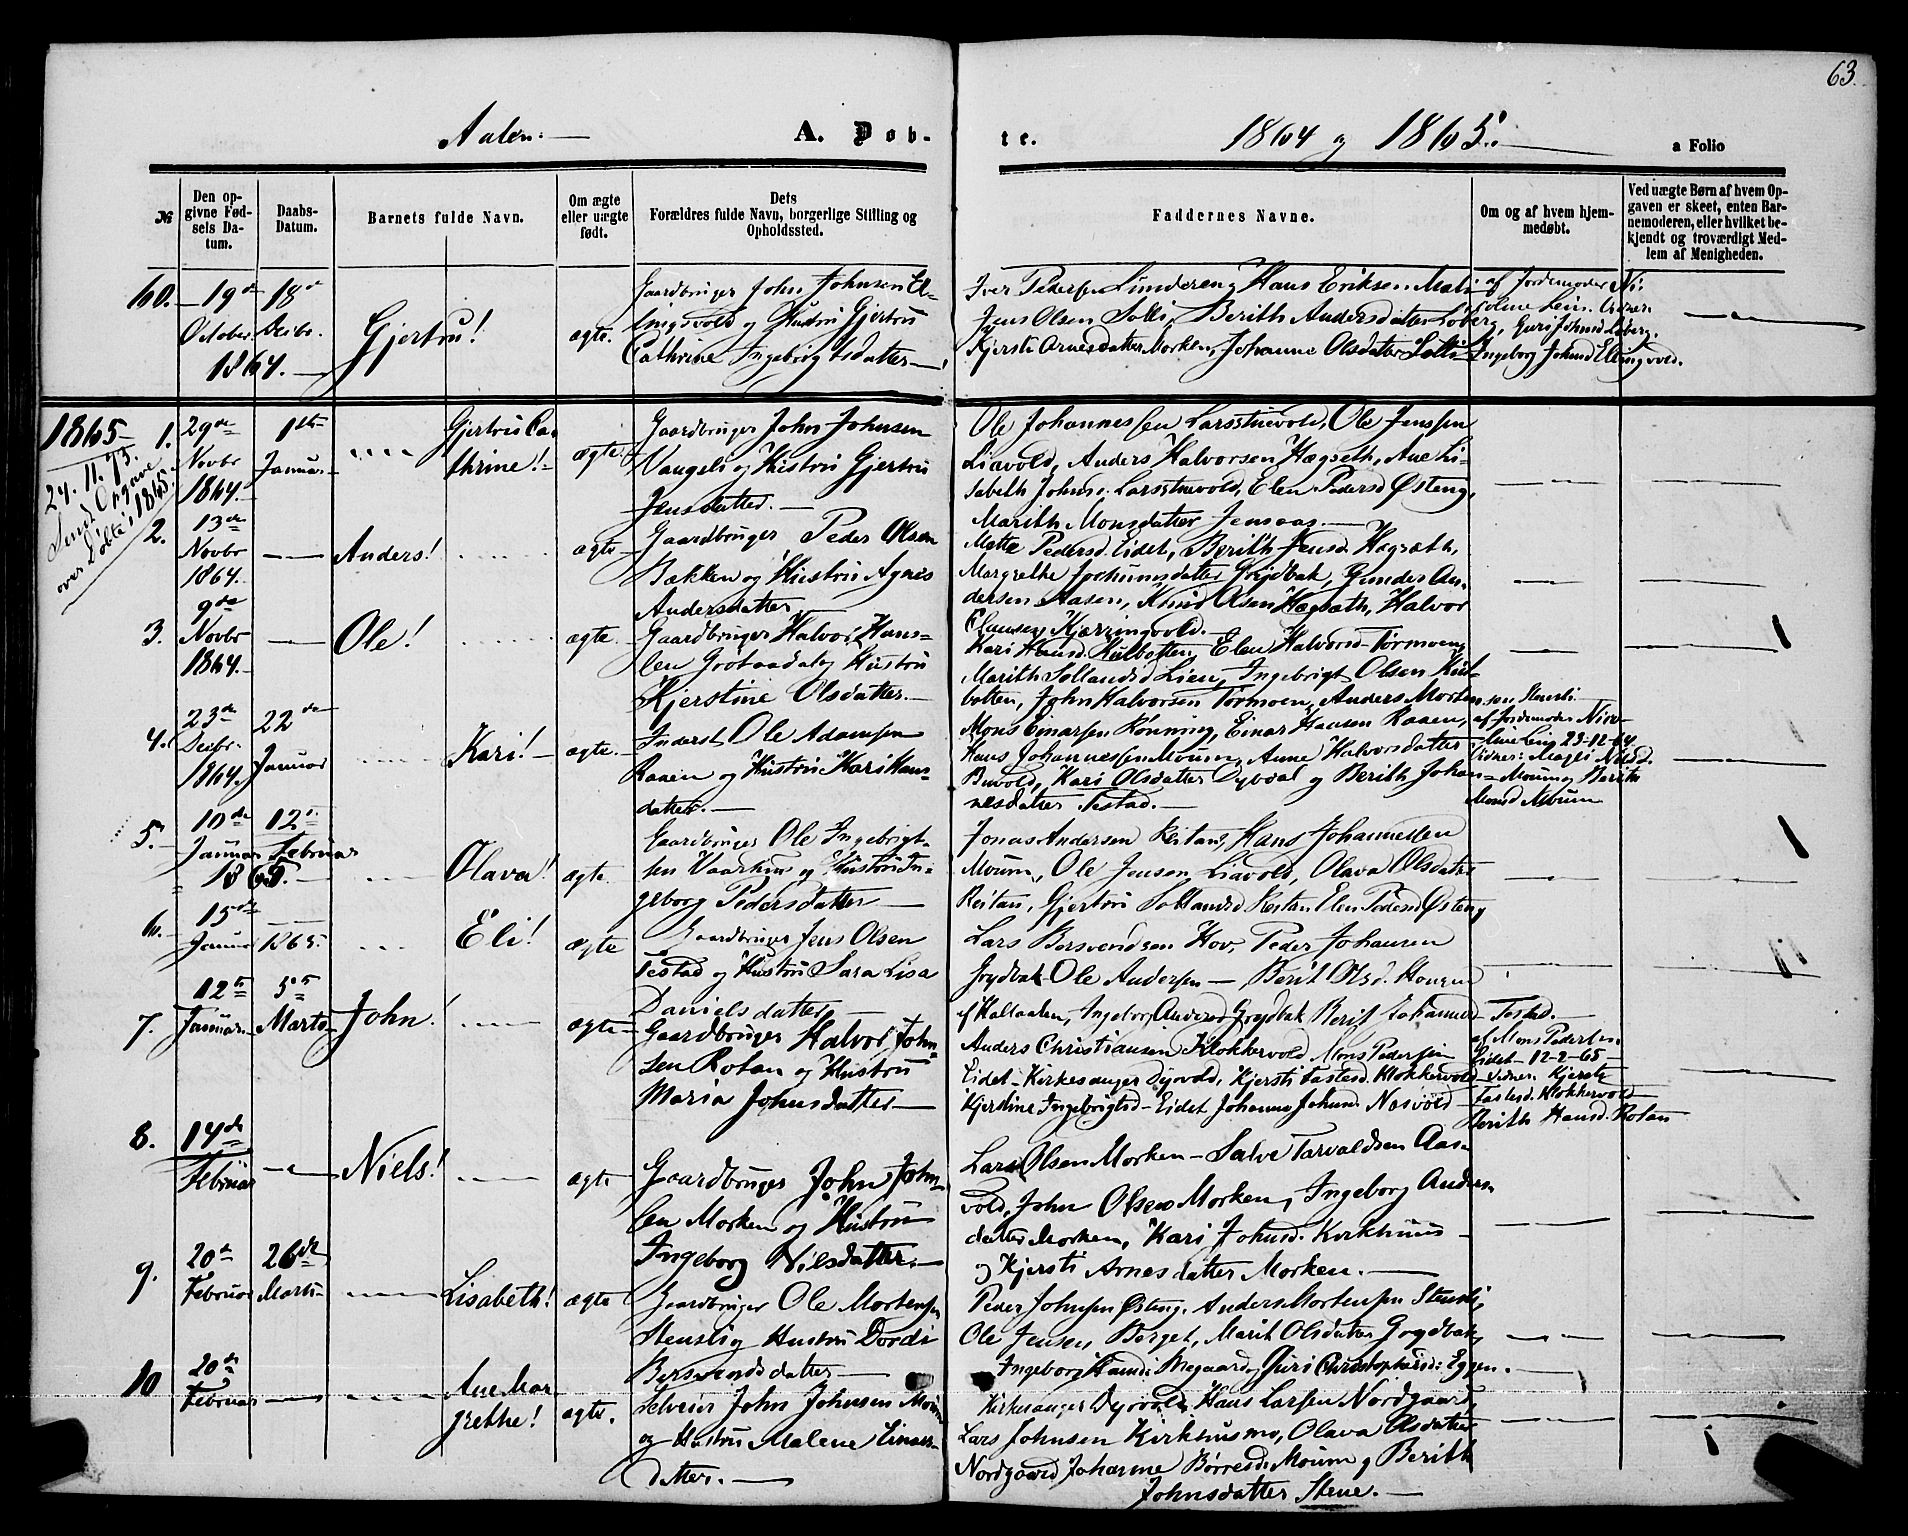 63.
Aalen.
A. Døb-
te.
1864 og 1865.
a Folio
№
Den op-
givne Fød-
sels Da-
tum.
Daabs-
Datum.
Barnets fulde Navn.
Om ægte
eller uægte
født.
Dets
Forældres fulde Navn, borgerlige Stilling og
Opholdssted.
Faddernes Navne.
Om og af hvem hjem-
medøbt.
Ved uægte Børn af hvem Op-
gaven er skeet, enten Bar-
nemoderen, eller hvilket be-
kjendt og troværdigt Med-
lem af Menigheden.
60.
19de
October
1864.
18de
Decbr.
Gjertru!
ægte.
Gaardbruger John Johnsen El-
lingsvold og Hustru Gjertru
Cathrine Ingebrigtsdatter
Iver Pedersen Lundereng Hans Eriksen
Jens Olsen Solli, Berith Andersdatter Løberg,
Kjersti Arnesdatter Morken, Johanne Olsdatter Solli
af Jordemoder Ni-
coline Lein.
Guri Johnsd Løberg.
Ingeborg Johnsd Ellingsvold.
1865
24.11.73.
Send Opgave
over Døbte i 1865.
1.
29de
Novbr
1864.
1ste
Januar.
Gjertru Ca-
thrine!
ægte.
Gaardbruger John Johnsen
Vangeli og Hustru Gjertru
Jensdatter.
Ole Johannessen Larsstuevold, Ole Jensen
Liavold, Anders Halvorsen Hægseth, Ane Li-
sabeth Johns. Larsstuevold, Elen Pedersd Østeng,
Marith Monsdatter Jensaas.
2.
13de
Novbr
1864.
Anders!
ægte
Gaardbruger Peder Olsen
Bakken og Hustru Agnes
Andersdatter
Mette Pedersd. Eidet, Berith Jensd. Hægsæth,
Margrethe Jochumsdatter Grydbak, Gunder An-
dersen Aasen, Knud Olsen Hægsæth, Halvor
Clausen Kjærringvold.
3.
9de
Novbr
1864.
Ole!
ægte.
Gaardbruger Halvor Hans-
sen Grøtaadal og Hustru
Kjerstine Olsdatter.
Kari Hansd. Kulbotten, Elen Halvorsd. Tørmoen,
Marith Sollandsd Lien, Ingebrigt Olsen Kul-
botten, John Halvorsen Tørmoen, Anders Morten-
sen Stensli
4.
23de
Decbr.
1864
22de
Januar
Kari!
ægte.
Inderst Ole Adamsen
Raaen og Hustru Kari Hans-
datter.
Mons Einarsen Rønning, Einar Hansen Raaen,
Hans Johannessen Moum, Anne Halvorsdatter
Buvold, Kari Olsdatter Dyvdal og Berith Johan-
nesdatter Testad.
af Jordemoder Nico-
line Lein 23-12-64
Vidner: Magli Nilsd.
Moum og Berith
Monsd Moum
5.
10de
Januar
1865.
12te
Februar
Olava!
ægte.
Gaardbruger Ole Ingebrigt-
sen Vaarhus og Hustru In-
geborg Pedersdatter
Jonas Andersen Reitan, Hans Johannessen
Moum, Ole Jensen Liavold, Olava Olsdatter
Reitan, Gjertru Sollandsd Reitan Elen Pedersd Østeng
6.
15de
Januar
1865.
Eli!
ægte
Gaardbruger Jens Olsen
Testad og Hustru Sara Lisa
Danielsdatter
Lars Bersvendsen Hov, Peder Johansen
Grydbak Ole Andersen Berit Olsd. Hougen
i Haltaalen, Ingeborg Andersd Grydbak Berit Johannesd
Testad.
7.
12te
Januar.
5te
Marts
John!
ægte
Gaardbruger Halvor John-
sen Rotan og Hustru
Maria Johnsdatter
Anders Christiansen Klokkervold Mons Pedersen
Eidet Kirkesanger Dyrvold, Kjersti Tastesd. Klokkervold
Kjerstine Ingebrigtsd Eidet Johanna Johnsd. Nosvold
af Mons Pedersen
Eidet 12-2-65
Vidner. Kjersti
Tastesd. Klokkervold
Berith Hansd. Rotan
8.
14de
Februar
Niels!
ægte
Gaardbruger John John-
sen Morken og Hustru
Ingeborg Nilsdatter.
Lars Olsen Morken Salve Tarvaldsen Aas-
vold, John Olsen Morken, Ingeborg Anders-
datter Morken, Kari Johnsd. Kirkhuus
og Kjersti Arnesdatter Morken.
9.
20de
Februar
26de
Marts
Lisabeth!
ægte
Gaardbruger Ole Mortensen
Stensli og Hustru Dordi
Bersvendsdatter
Peder Johnsen Østeng. Anders Mortensen Stensli,
Ole Jensen Berget, Marit Olsdatter Grydbak,
Ingeborg Hansd: Megaard, Guri Christophersd: Eggen.
10
20de
Februar
Ane Mar-
grethe!
ægte.
Selveier John Johnsen Moum
og Hustru Malene Einars-
datter.
Kirkesanger Dyrvold, Hans Larsen Nordgaard,
Lars Johnsen Kirkhusmo, Olava Olsdatter
Nordgaard Johanne Børresd. Moum og Berith
Johnsdatter Stene.